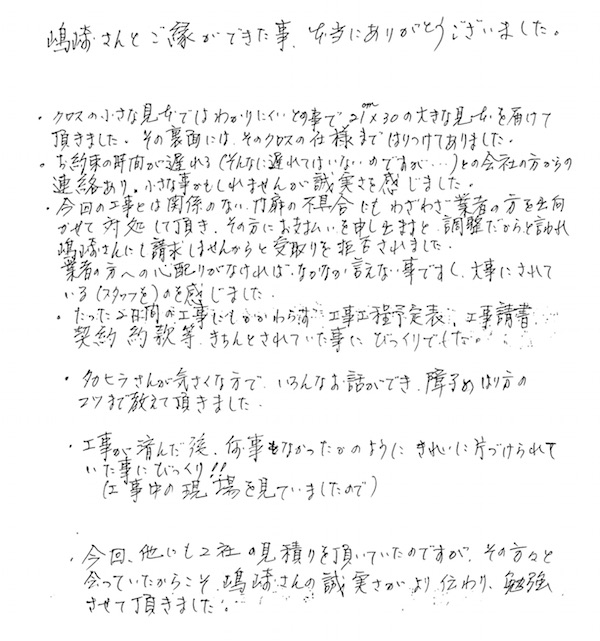 嶋崎さんとご縁ができた事、本当にありがとうございました。
・クロスの小さな見本ではわかりにくいとの事で21cm×30の大きな見本を届けて
頂きました。その裏面には、そのクロスの仕様まではりつけてありました。
・お約束の時間が遅れる(そんなに遅れてはいないのですが…)との会社の方からの
連絡あり。小さな事かもしれませんが誠実さを感じました。
・今回の工事とは関係のない、扉の不具合にもわざわざ業者の方を出向
かせて対処して頂き、その方にお支払いを申し出ますと、調整だからと言われ
嶋崎さんにも請求しませんからと受取りを拒否されました。
業者の方への心配りがなければ、なかなか言えない事ですし、大事にされて
いる(スタッフを)のを感じました。
・たった2日間の工事にもかかわらず、工事工程予定表、工事請書、
契約約款等、きちんとされていた事にびっくりでした。
・タカヒラさんが気さくな方で、いろんなお話ができ、障子のはり方の
コツまで教えて頂きました。
・工事が済んだ後、何事もなかったかのようにきれいに片づけられて
いた事にびっくり!!
(工事中の現場を見ていましたので)
・今回、他にも2社の見積りを頂いていたのですが、その方々と
会っていたからこそ、嶋崎さんの誠実さがより伝わり、勉強
させて頂きました。